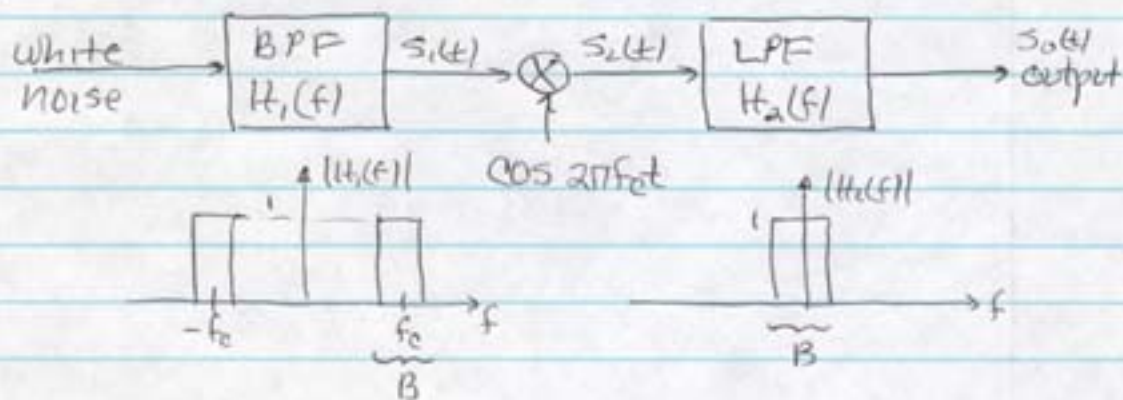 white noise
BPF
H₁(f)
S₁(t)
S₂(t)
LPF
H₂(f)
S₀(t)
output
cos 2πfct
|H₁(f)|
1
-fc
fc
f
B
|H₂(f)|
1
f
B